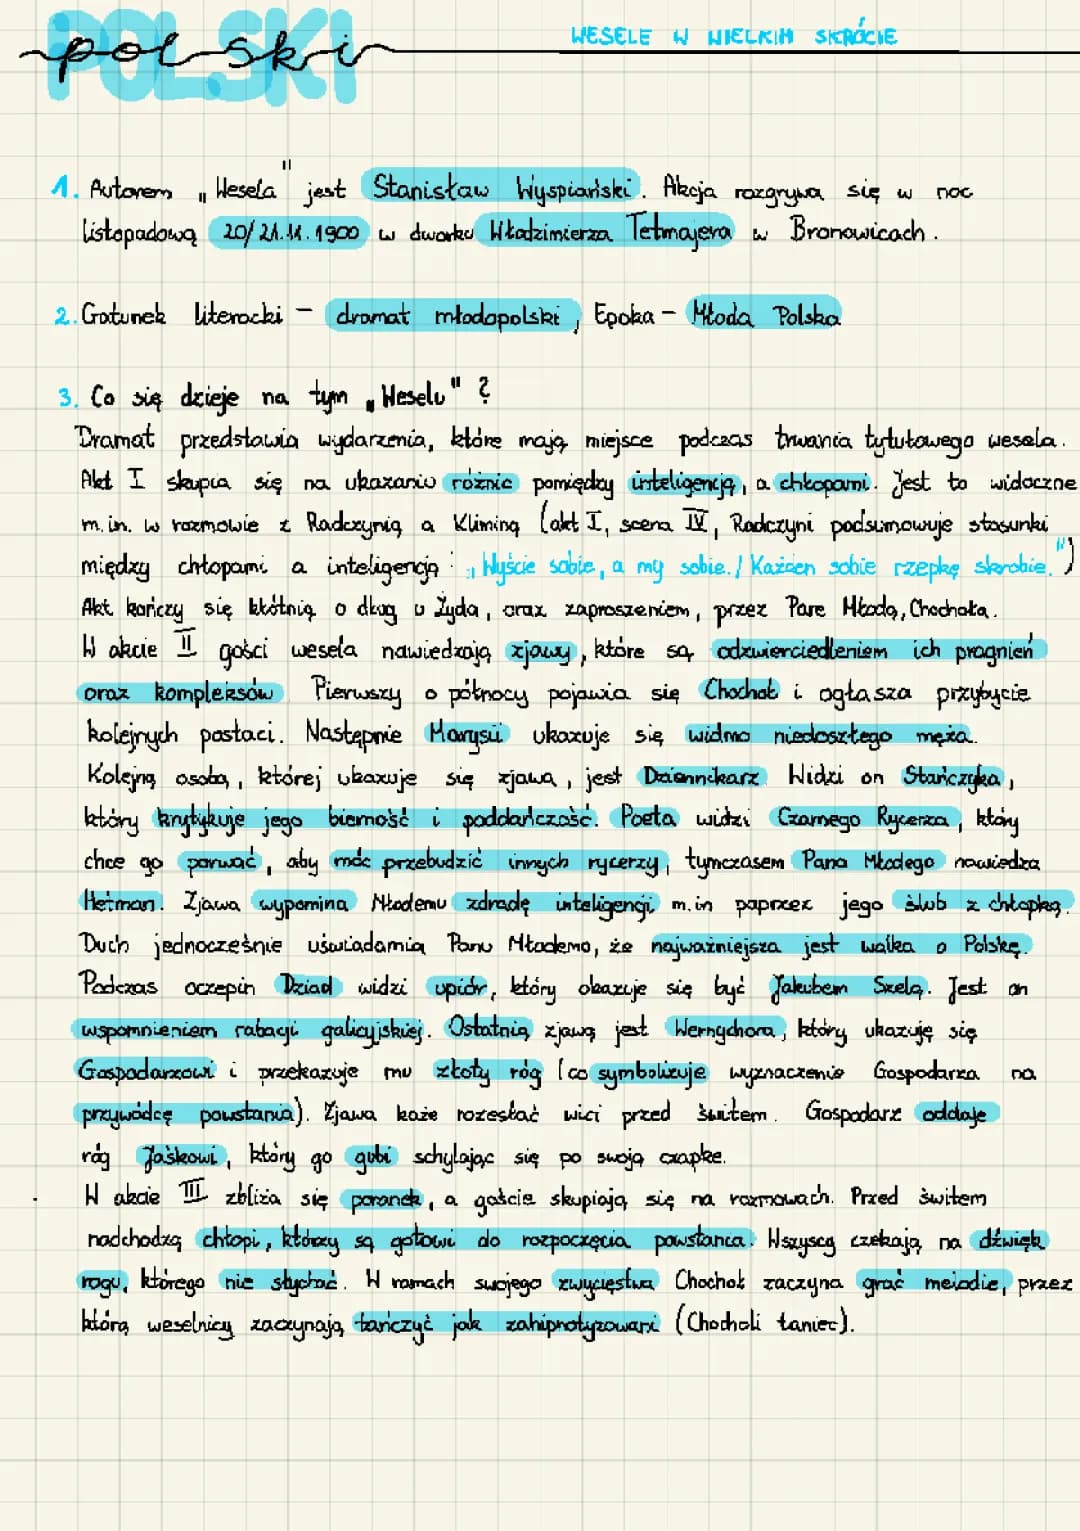 POLSKI
polski
WESELE W WIELKIM SKRÓCIE
1. Autorem „Wesela" jest Stanisław Wyspiański. Akcja rozgrywa się w noc
listopadową 20/21.11.1900 w dworku Włodzimierza Tetmajera w Bronowicach.
2. Gatunek literacki – dramat młodopolski, Epoka – Młoda Polska
3. Co się dzieje na tym „Weselu" ?
Dramat przedstawia wydarzenia, które mają miejsce podczas trwania tytułowego wesela.
Akt I skupia się na ukazaniu różnic pomiędzy inteligencją, a chłopami. Jest to widoczne
m.in. w rozmowie z Radczynią a Kliminą (akt I, scena IV, Radczyni podsumowuje stosunki
między chłopami a inteligencją : „Wyście sobie, a my sobie. / Każden sobie rzepkę skrobie.")
Akt kończy się kłótnią o dług u Żyda, oraz zaproszeniem, przez Pare Młodą, Chochoła.
W akcie II gości wesela nawiedzają zjawy, które są odzwierciedleniem ich pragnień
oraz kompleksów. Pierwszy o północy pojawia się Chochoł i ogłasza przybycie
kolejnych postaci. Następnie Marysii ukazuje się widmo niedoszłego męża.
Kolejną osobą, której ukazuje się zjawa, jest Dziennikarz. Widzi on Stańczyka,
który krytykuje jego bierność i poddańczość. Poeta widzi Czarnego Rycerza, który
chce go porwać, aby móc przebudzić innych rycerzy, tymczasem Pana Młodego nawiedza
Hetman. Zjawa wypomina Młodemu zdradę inteligencji m.in poprzez jego ślub z chłopką.
Duch jednocześnie uświadamia Panu Młodemu, że najważniejsza jest walka o Polskę.
Podczas oczepin Dziad widzi upiór, który okazuje się być Jakubem Szelą. Jest on
wspomnieniem rabacji galicyjskiej. Ostatnią zjawą jest Wernyhora, który ukazuję się
Gospodarzowi i przekazuje mu złoty róg (co symbolizuje wyznaczenie Gospodarza na
przywódcę powstania). Zjawa każe rozesłać wici przed świtem. Gospodarz oddaje
róg Jaśkowi, który go gubi schylając się po swoją czapkę.
W akcie III zbliża się poranek, a goście skupiają się na rozmowach. Przed świtem
nadchodzą chłopi, którzy są gotowi do rozpoczęcia powstania. Wszyscy czekają na dźwięk
rogu, którego nie słychać. W ramach swojego zwycięstwa Chochoł zaczyna grać melodie, przez
którą weselnicy zaczynają tańczyć jak zahipnotyzowani (Chocholi taniec).